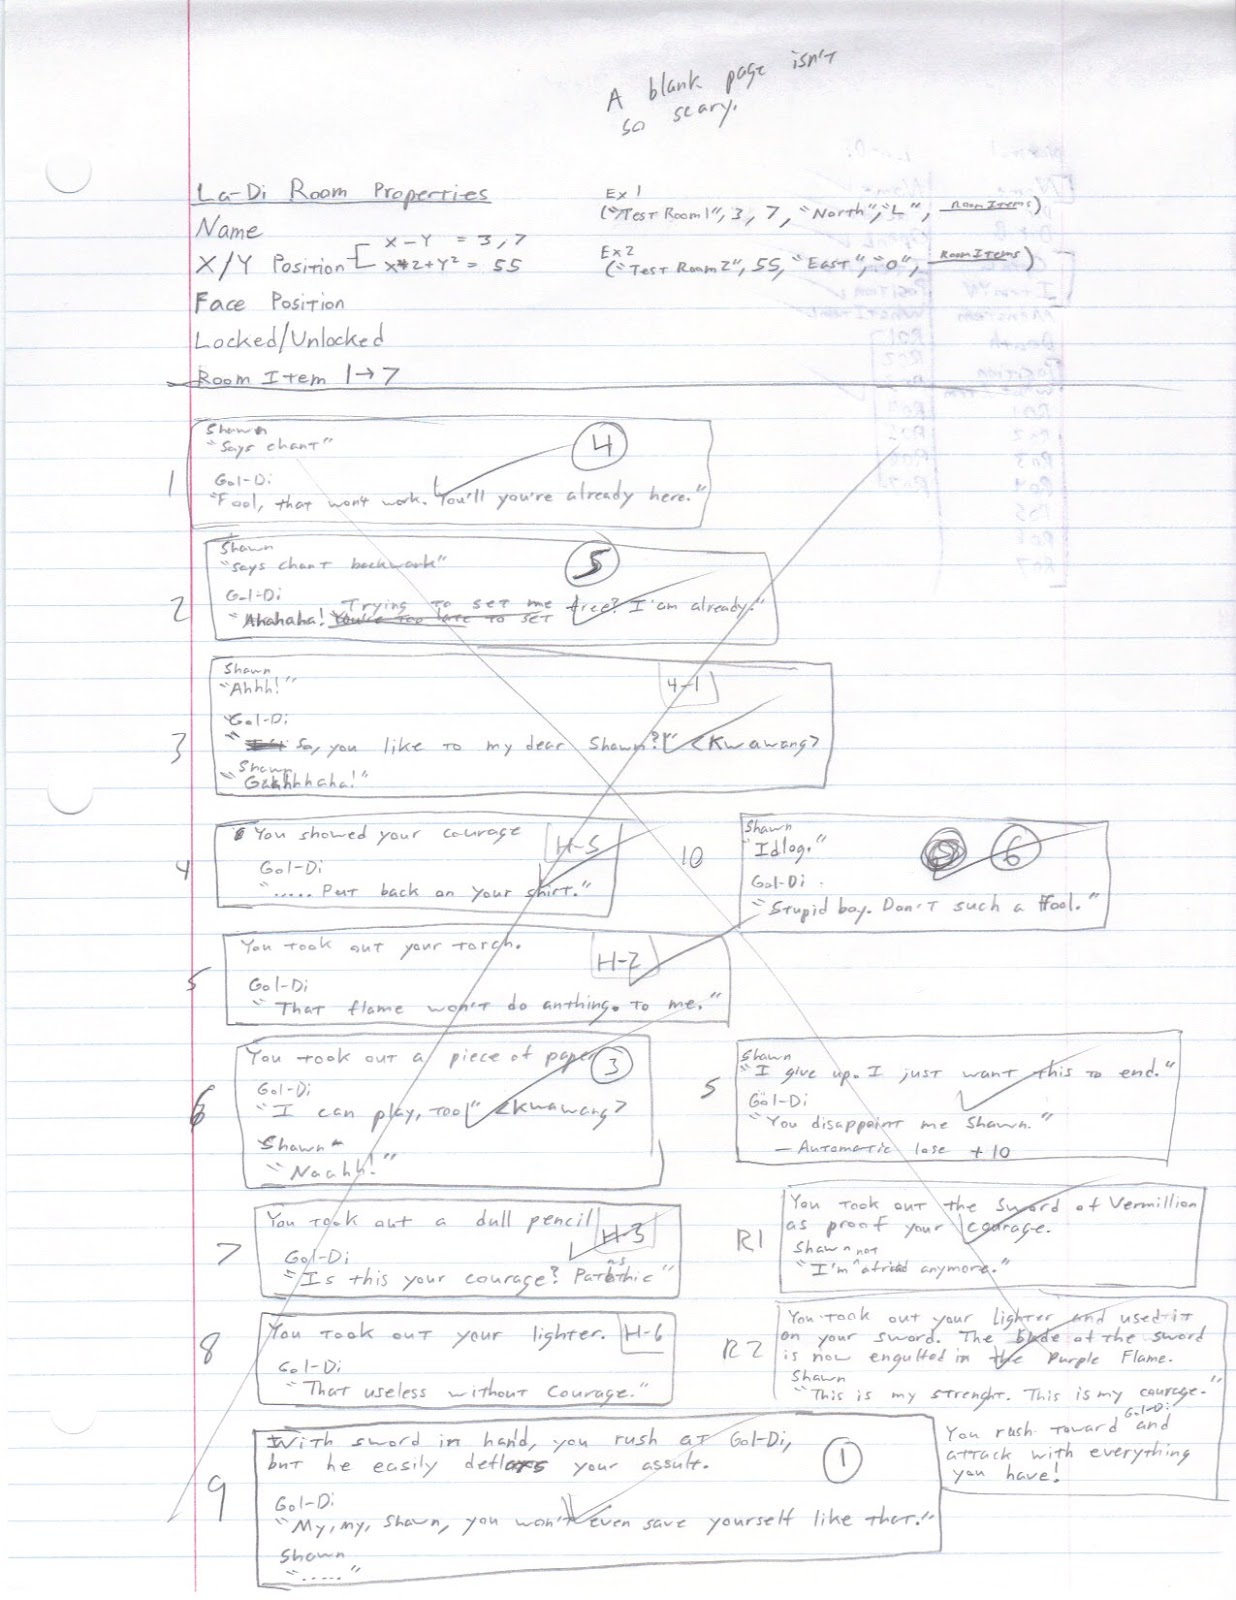 A blank page isn't
so scary.
La-Di Room Properties
Name
X/Y Position
X-Y = 3,7
X*2+Y² = 55
Face Position
Locked/Unlocked
Room Item 1→7
Ex 1
("Test Room1", 3, 7, "North", "L", RoomItems)
Ex2
("Test Room2", 55, "East", "O", RoomItems)
1
Shawn
"Says chant"
4
Gol-Di
"Fool, that won't work. You'll you're already here."
2
Shawn
"Says chant backwark"
5
Gol-Di
Trying to set me free? I am already."
"Ahahaha! You're too late to set
3
Shawn
"Ahhh!"
4-1
Gol-Di
" So, you like to my dear Shawn?" <Kwawang>
Shawn
"Gahhhhaha!"
4
You showed your courage
H-5
Gol-Di
"..... Put back on your shirt."
10
Shawn
"Idlog."
6
Gol-Di
"Stupid boy. Don't such a ffool."
5
You took out your torch.
H-2
Gol-Di
"That flame won't do anthing. to me."
6
You took out a piece of paper
3
Gol-Di
"I can play, too!" <Kwawang>
Shawn
"Naahh!"
5
Shawn
"I give up. I just want this to end."
Gol-Di
"You disappoint me Shawn."
- Automatic lose +10
7
You took out a dull pencil
H-3
Gol-Di
"Is this your courage? Pathic"
R1
You took out the Sword of Vermillion
as proof your courage.
Shawn
"I'm not afriad anymore."
8
You took out your lighter.
H-6
Gol-Di
"That useless without Courage."
R2
You took out your lighter and used it
on your sword. The blade of the sword
is now engulfed in the Purple Flame.
Shawn
"This is my strenght. This is my courage."
You rush toward Gol-Di and
attack with everything
you have!
9
With sword in hand, you rush at Gol-Di,
but he easily your assult.
1
Gol-Di
"My, my, Shawn, you won't even save yourself like that."
Shawn
"....."